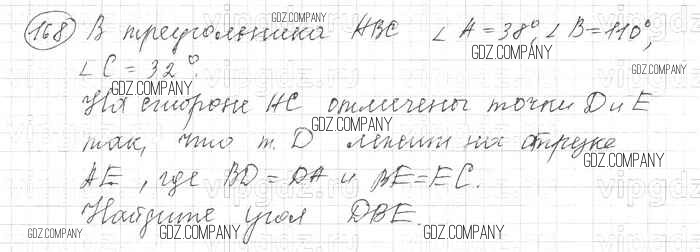 168) В треугольнике ABC ∠A = 38°, ∠B = 110°,
∠C = 32°.
На стороне AC отмечены точки D и E
так, что т. D лежит на отрезке
AE, где BD = DA и BE = EC.
Найдите угол DBE.
GDZ.COMPANY
GDZ.COMPANY
GDZ.COMPANY
GDZ.COMPANY
GDZ.COMPANY
GDZ.COMPANY
GDZ.COMPANY
GDZ.COMPANY
GDZ.COMPANY
GDZ.COMPANY